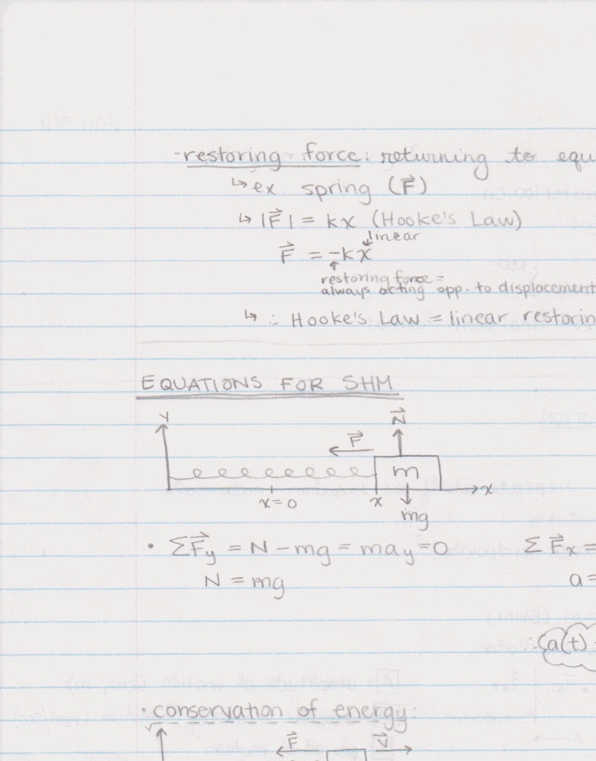 -restoring force: returning to equ
↳ex spring (F⃗)
↳ |F⃗| = kx (Hooke's Law)
linear
F⃗ = -kx⃗
restoring force =
always acting opp. to displacement
↳ ∴ Hooke's Law = linear restorin
EQUATIONS FOR SHM
y
N⃗
F⃗
m
x=0 x x
mg
• ΣF⃗y = N - mg = may = 0 ΣF⃗x =
N = mg a =
∴ a(t)
• conservation of energy:
y F⃗ V⃗